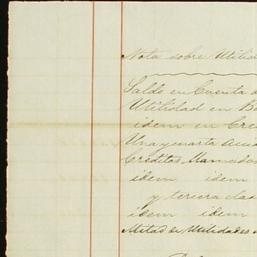 Nota sobre Utilid
Saldo en Cuenta d
Utilidad en B
idem en Cre
Una y cuarta Acci
Creditos llamados
idem idem
y tercera clas
idem idem
Mitad de Utilidades